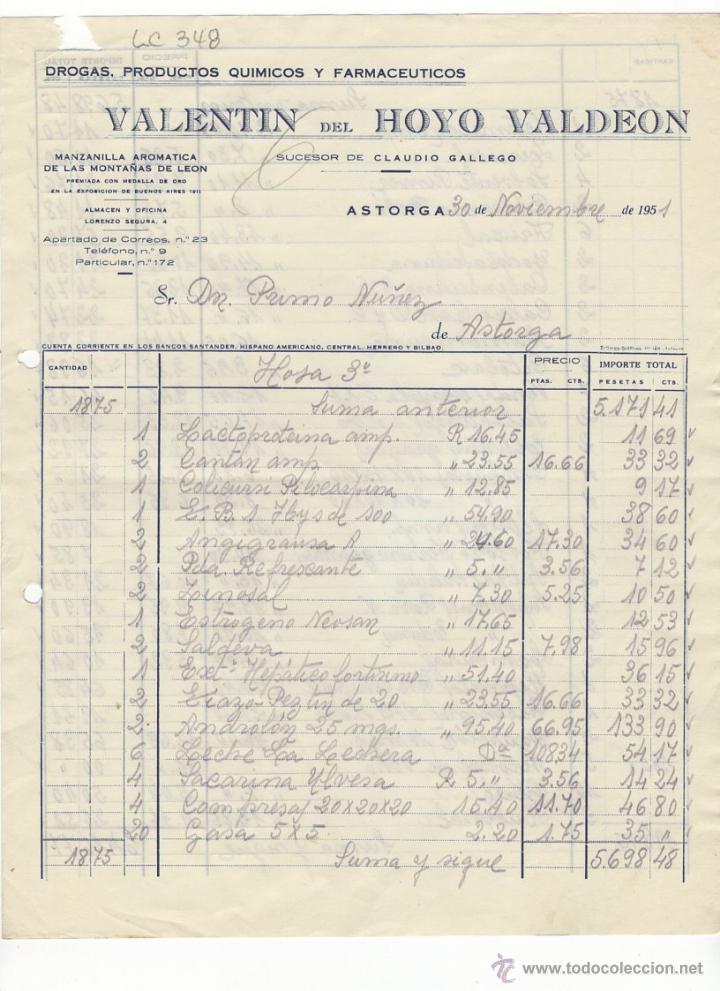 LC 348
DROGAS, PRODUCTOS QUIMICOS Y FARMACEUTICOS
VALENTIN DEL HOYO VALDEON
MANZANILLA AROMATICA
DE LAS MONTAÑAS DE LEON
PREMIADA CON MEDALLA DE ORO
EN LA EXPOSICION DE BUENOS AIRES 1911
SUCESOR DE CLAUDIO GALLEGO
ALMACEN Y OFICINA
LORENZO SEGURA, 4
ASTORGA 30 de Noviembre de 1951
Apartado de Correos, n.º 23
Teléfono, n.º 9
Particular, n.º 172
Sr. Dn. Primo Nuñez
de Astorga
CUENTA CORRIENTE EN LOS BANCOS SANTANDER, HISPANO AMERICANO, CENTRAL, HERRERO Y BILBAO.
CANTIDAD Hoja 3ª PRECIO PTAS. CTS. IMPORTE TOTAL PESETAS CTS.
1875 Suma anterior 5.171 41
1 Lactoproteina amp. R 16.45 11 69
2 Cantan amp " 23.55 16.66 33 32
1 Colicursi Pilocarpina " 12.85 9 17
1 E.B.1 Hys de 100 " 54.90 38 60
2 Angigrausa R " 24.60 17.30 34 60
2 Pda. Refrescante " 5. " 3.56 7 12
2 Zinosal " 7.30 5.25 10 50
1 Estrogeno Neosan " 17.65 12 53
2 Saldeva " 11.15 7.98 15 96
1 Extº Hepático fortisimo " 51.40 36 15
2 de 20 " 23.55 16.66 33 32
2 Androlón 25 mgs. " 95.40 66.95 133 90
6 Leche La Lechera Dª 108.34 54 17
4 Sacarina Ylvesa R 5. " 3.56 14 24
4 Compresas 20x20x20 15.40 11.70 46 80
20 Gasa 5x5 2.20 1.75 35 "
1875 Suma y sigue 5.698 48
www.todocoleccion.net